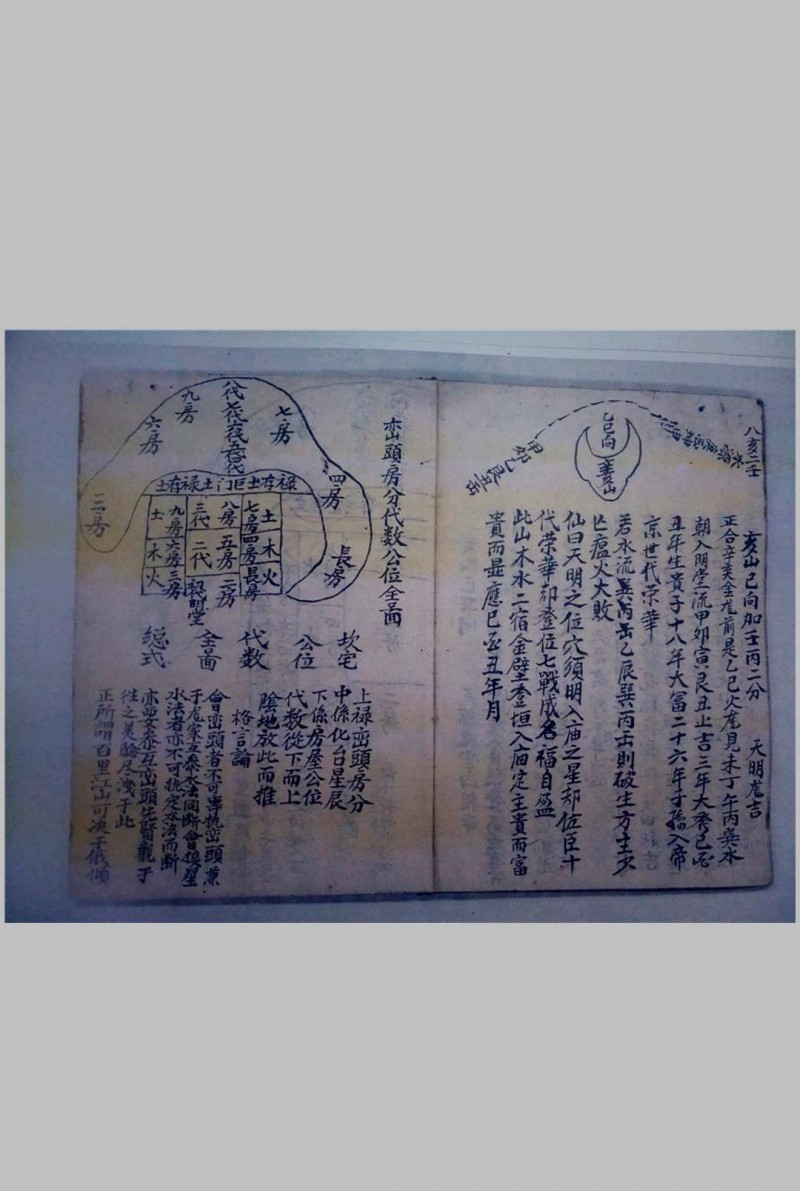 八亥二壬
亥山巳向加壬丙二分 天明龙吉
正合辛亥金龙前是乙巳火龙見未丁午丙巽水
朝入明堂流甲卯寅艮丑止吉三年大發已酉
丑年生貴子十八年大富二十六年才孫入帝
京世代荣華
若水流巽丙缶乙辰巽丙缶則破生方主少
亡瘟火大敗
仙曰天明之位穴須明入庙之星却位臣十
代荣華却登位七戰成名福自盈
此山木水二宿金壁登垣入庙定主貴而富
貴而显應巳酉丑年月
巳向
亥山
甲卯乙艮丑缶
巒頭房分代数公位全畐
七房
九房
六房
三房
四房
長房
土存禄土门巨土存禄
土 七房 八房 三代 九房 土
木 四房 五房 二代 六房 木
火 長房 二房 明堂 三房 火
坎宅
公位
代数
全面
総式
上禄峦頭房分
中係化台星辰
下係房屋公位
代数從下而上
陰地放此而推
格言論
會峦頭者不可專挑峦頭兼
于龙家互参水法同断會挨星
水法者亦不可挑定水法而断
亦要参互峦頭先賢觀于
徃之美驗尽洩于此
正所謂百里江山可决于俄傾